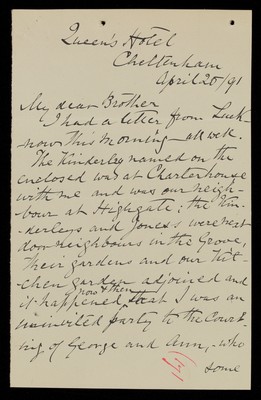 Queen's Hotel
Cheltenham
April 20/91
My dear Brother
I had a letter from Luck-
now this morning - all well.
The Kinderley named on the
enclosed was at Charterhouse
with me and was our neigh-
bour at Highgate; the Kin-
derleys and Jones's were next
door neighbours in the Grove,
their gardens and our kit-
chen garden adjoined and
it happened now & then that I was an
uninvited party to the Court-
ing of George and Ann, - who
some